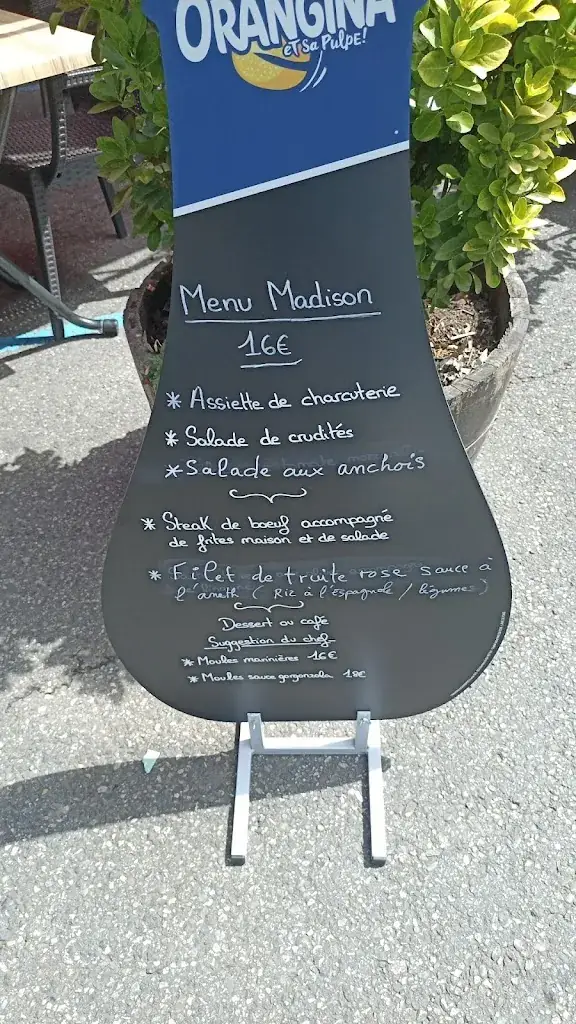 ORANGINA
et sa Pulpe!
Menu Madison
16€
* Assiette de charcuterie
* Salade de crudités
* Salade aux anchois
* Steak de boeuf accompagné
de frites maison et de salade
* Filet de truite rose sauce à
l'aneth ( Riz à l'espagnole / légumes )
Dessert ou café
Suggestion du chef
* Moules marinières 16€
* Moules sauce gorgonzola 18€